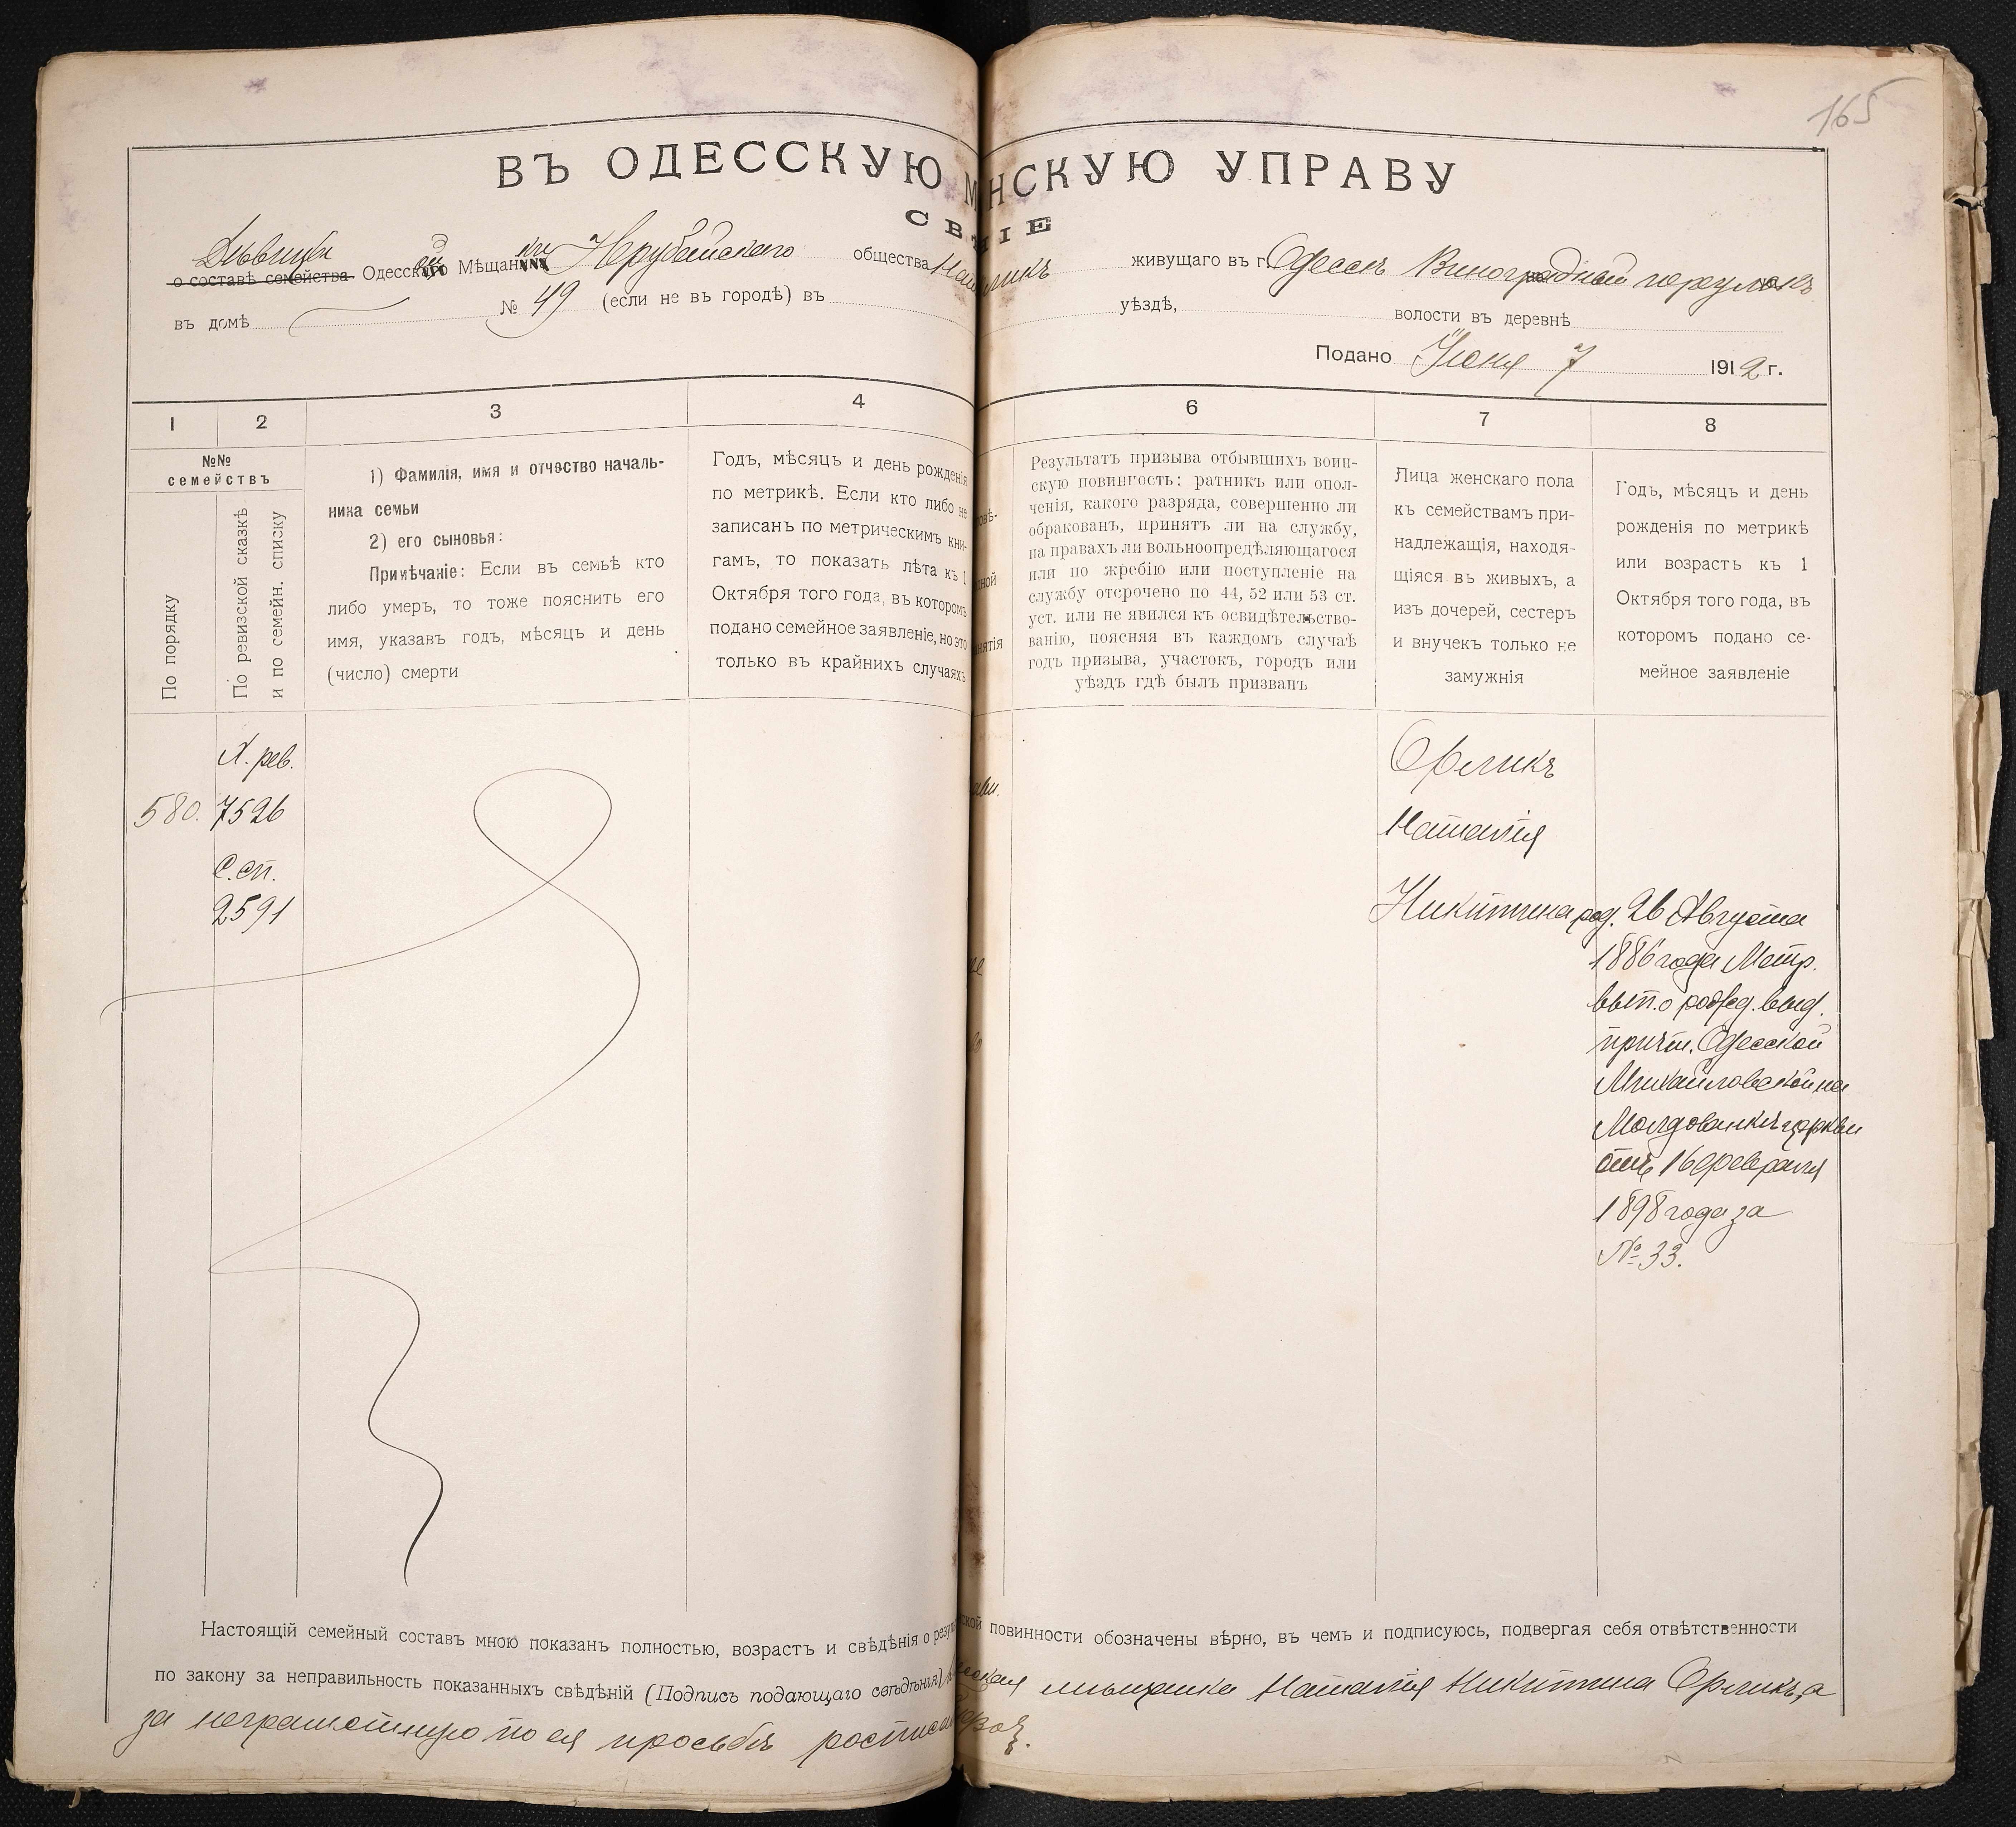 165
ВЪ ОДЕССКУЮ М НСКУЮ УПРАВУ
СВ НІЕ
Дѣвицы
о составѣ семейства Одесской Мѣщанки Нерубайскаго общества На ликъ живущаго въ г. Одессѣ Виноградный переулокъ
въ домѣ № 49 (если не въ городѣ) въ уѣздѣ, волости въ деревнѣ
Подано Іюня 7 1912 г.
1 2 3 4 6 7 8
№№
семействъ
По порядку
По ревизской сказкѣ
и по семейн. списку
1) Фамилія, имя и отчество началь-
ника семьи
2) его сыновья:
Примѣчаніе: Если въ семьѣ кто
либо умеръ, то тоже пояснить его
имя, указавъ годъ, мѣсяцъ и день
(число) смерти
Годъ, мѣсяцъ и день рожденія
по метрикѣ. Если кто либо не
записанъ по метрическимъ кни-
гамъ, то показать лѣта къ 1
Октября того года, въ которомъ
подано семейное заявленіе, но это
только въ крайнихъ случаяхъ
Результатъ призыва отбывшихъ воин-
скую повинность: ратникъ или опол-
ченія, какого разряда, совершенно ли
обракованъ, принятъ ли на службу,
на правахъ ли вольноопредѣляющагося
или по жребію или поступленіе на
службу отсрочено по 44, 52 или 53 ст.
уст. или не явился къ освидѣтельство-
ванію, поясняя въ каждомъ случаѣ
годъ призыва, участокъ, городъ или
уѣздъ гдѣ былъ призванъ
Лица женскаго пола
къ семействамъ при-
надлежащія, находя-
щіяся въ живыхъ, а
изъ дочерей, сестеръ
и внучекъ только не
замужнія
Годъ, мѣсяцъ и день
рожденія по метрикѣ
или возрастъ къ 1
Октября того года, въ
которомъ подано се-
мейное заявленіе
580.
X. рев.
7526
С. сп.
2591
Орликъ
Наталія
Никитина
род. 26 Августа
1886 года Метр.
вып. о рожд. выд.
причт. Одесской
Михайловской на
Молдованкѣ церкви
отъ 16 февраля
1898 года за
№ 33.
Настоящій семейный составъ мною показанъ полностью, возрастъ и свѣдѣнія о резул ской повинности обозначены вѣрно, въ чемъ и подписуюсь, подвергая себя отвѣтственности
по закону за неправильность показанныхъ свѣдѣній (Подпись подающаго свѣдѣнія) мѣщанка Наталія Никитина Орликъ, а
за неграмотную по ея просьбѣ росписа